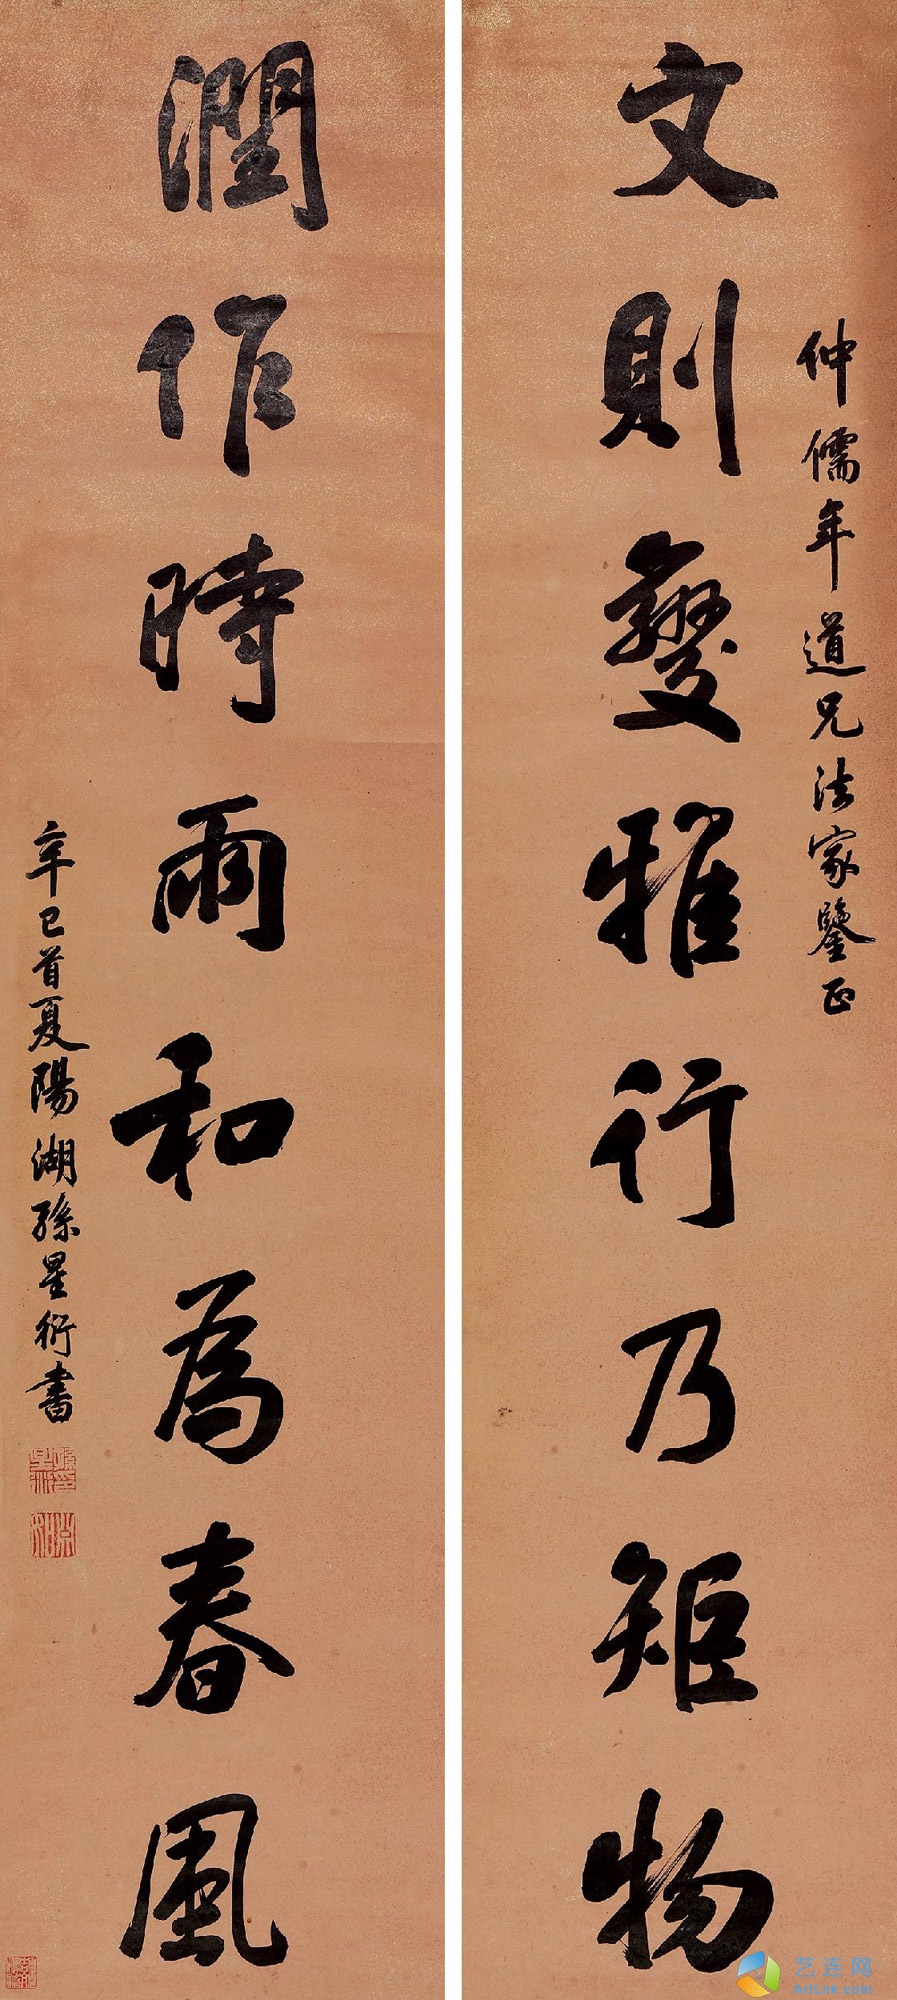 仲儒年道兄法家鑒正
文則變雅行乃矩物
潤作時雨和為春風
辛巳首夏陽湖孫星衍書
艺连网
ArtLnk.com